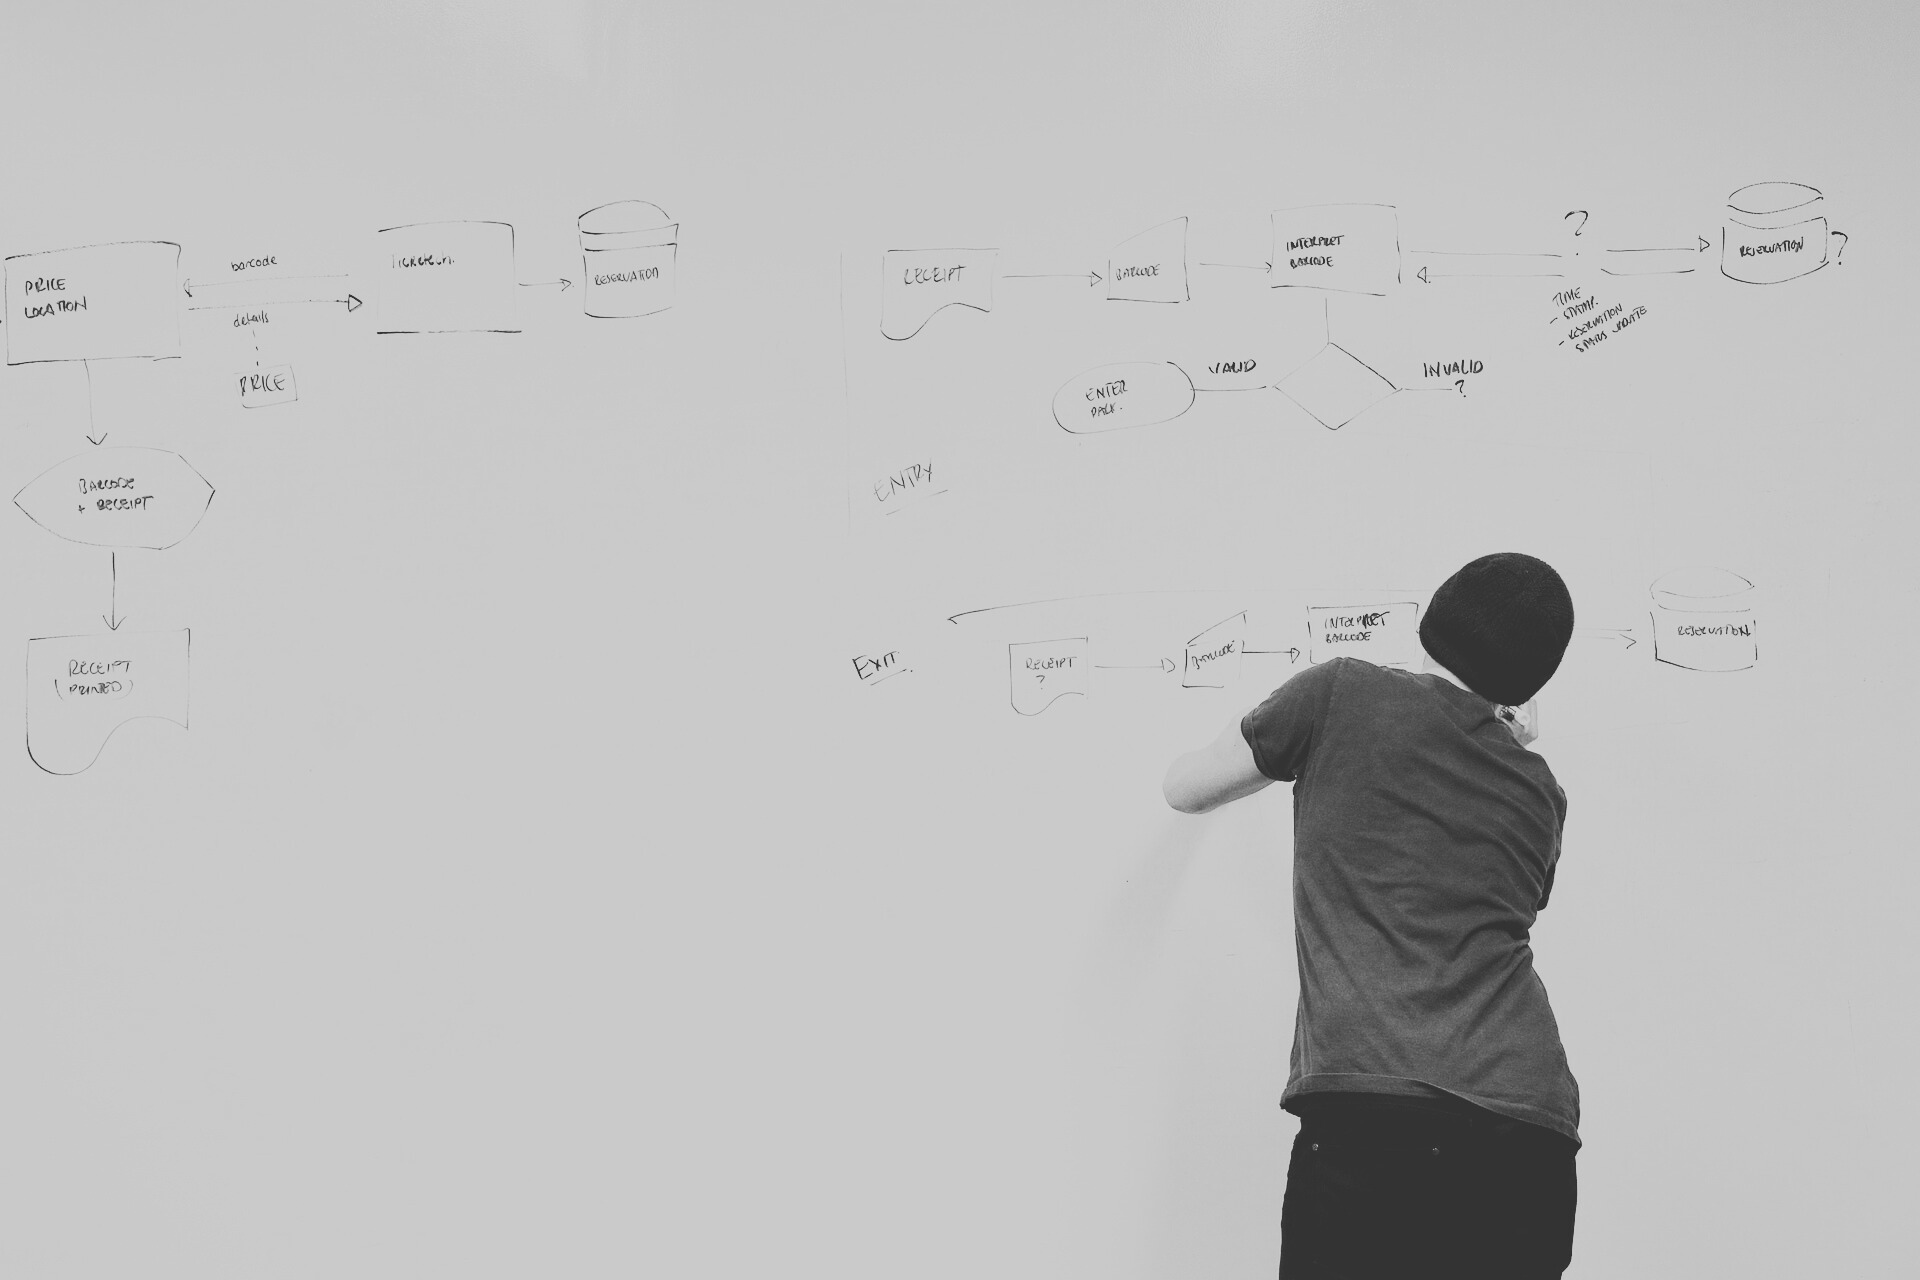 PRICE
LOCATION
barcode
details
PRICE
RESERVATION
BARCODE
+ RECEIPT
RECEIPT
(PRINTED)
RECEIPT
BARCODE
INTERPRET
BARCODE
?
TIME
- STAMP.
- RESERVATION
STATUS UPDATE
RESERVATION ?
VALID
INVALID
?
ENTER
PARK.
ENTRY
EXIT.
RECEIPT
?
BARCODE
INTERPRET
BARCODE
RESERVATION